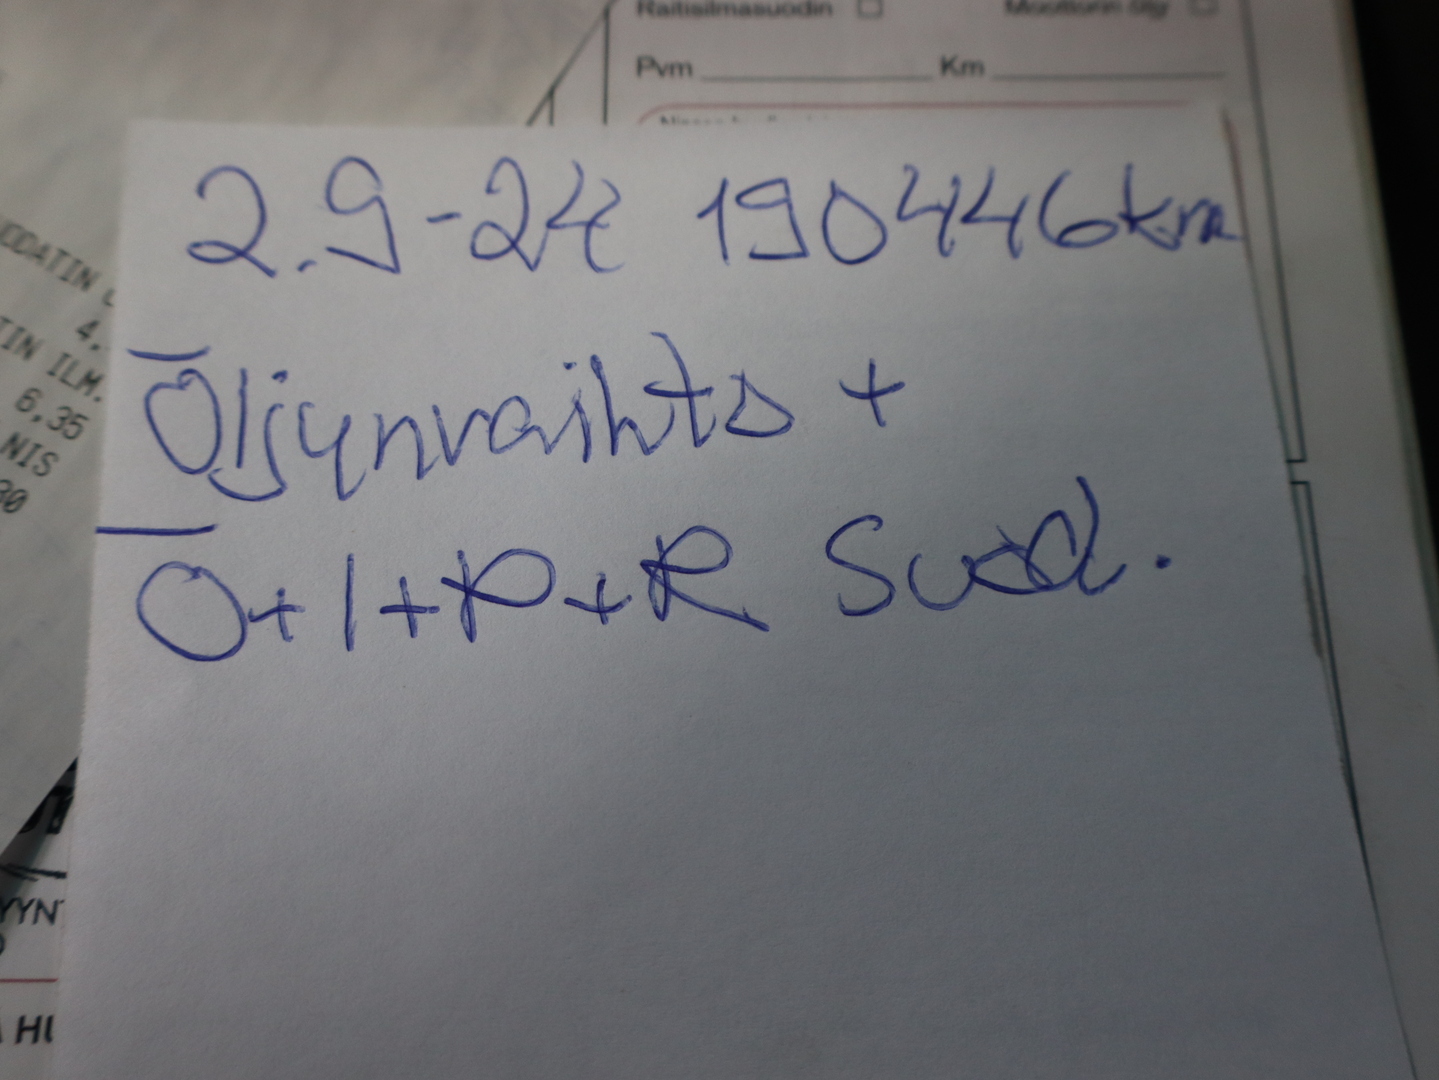 Raitisilmasuodin
Moottorin öljy
Pvm Km
2.9-24 190446km
Öljynvaihto +
Ö+I+P+R Suod.
4,
IN ILM.
6,35
NIS